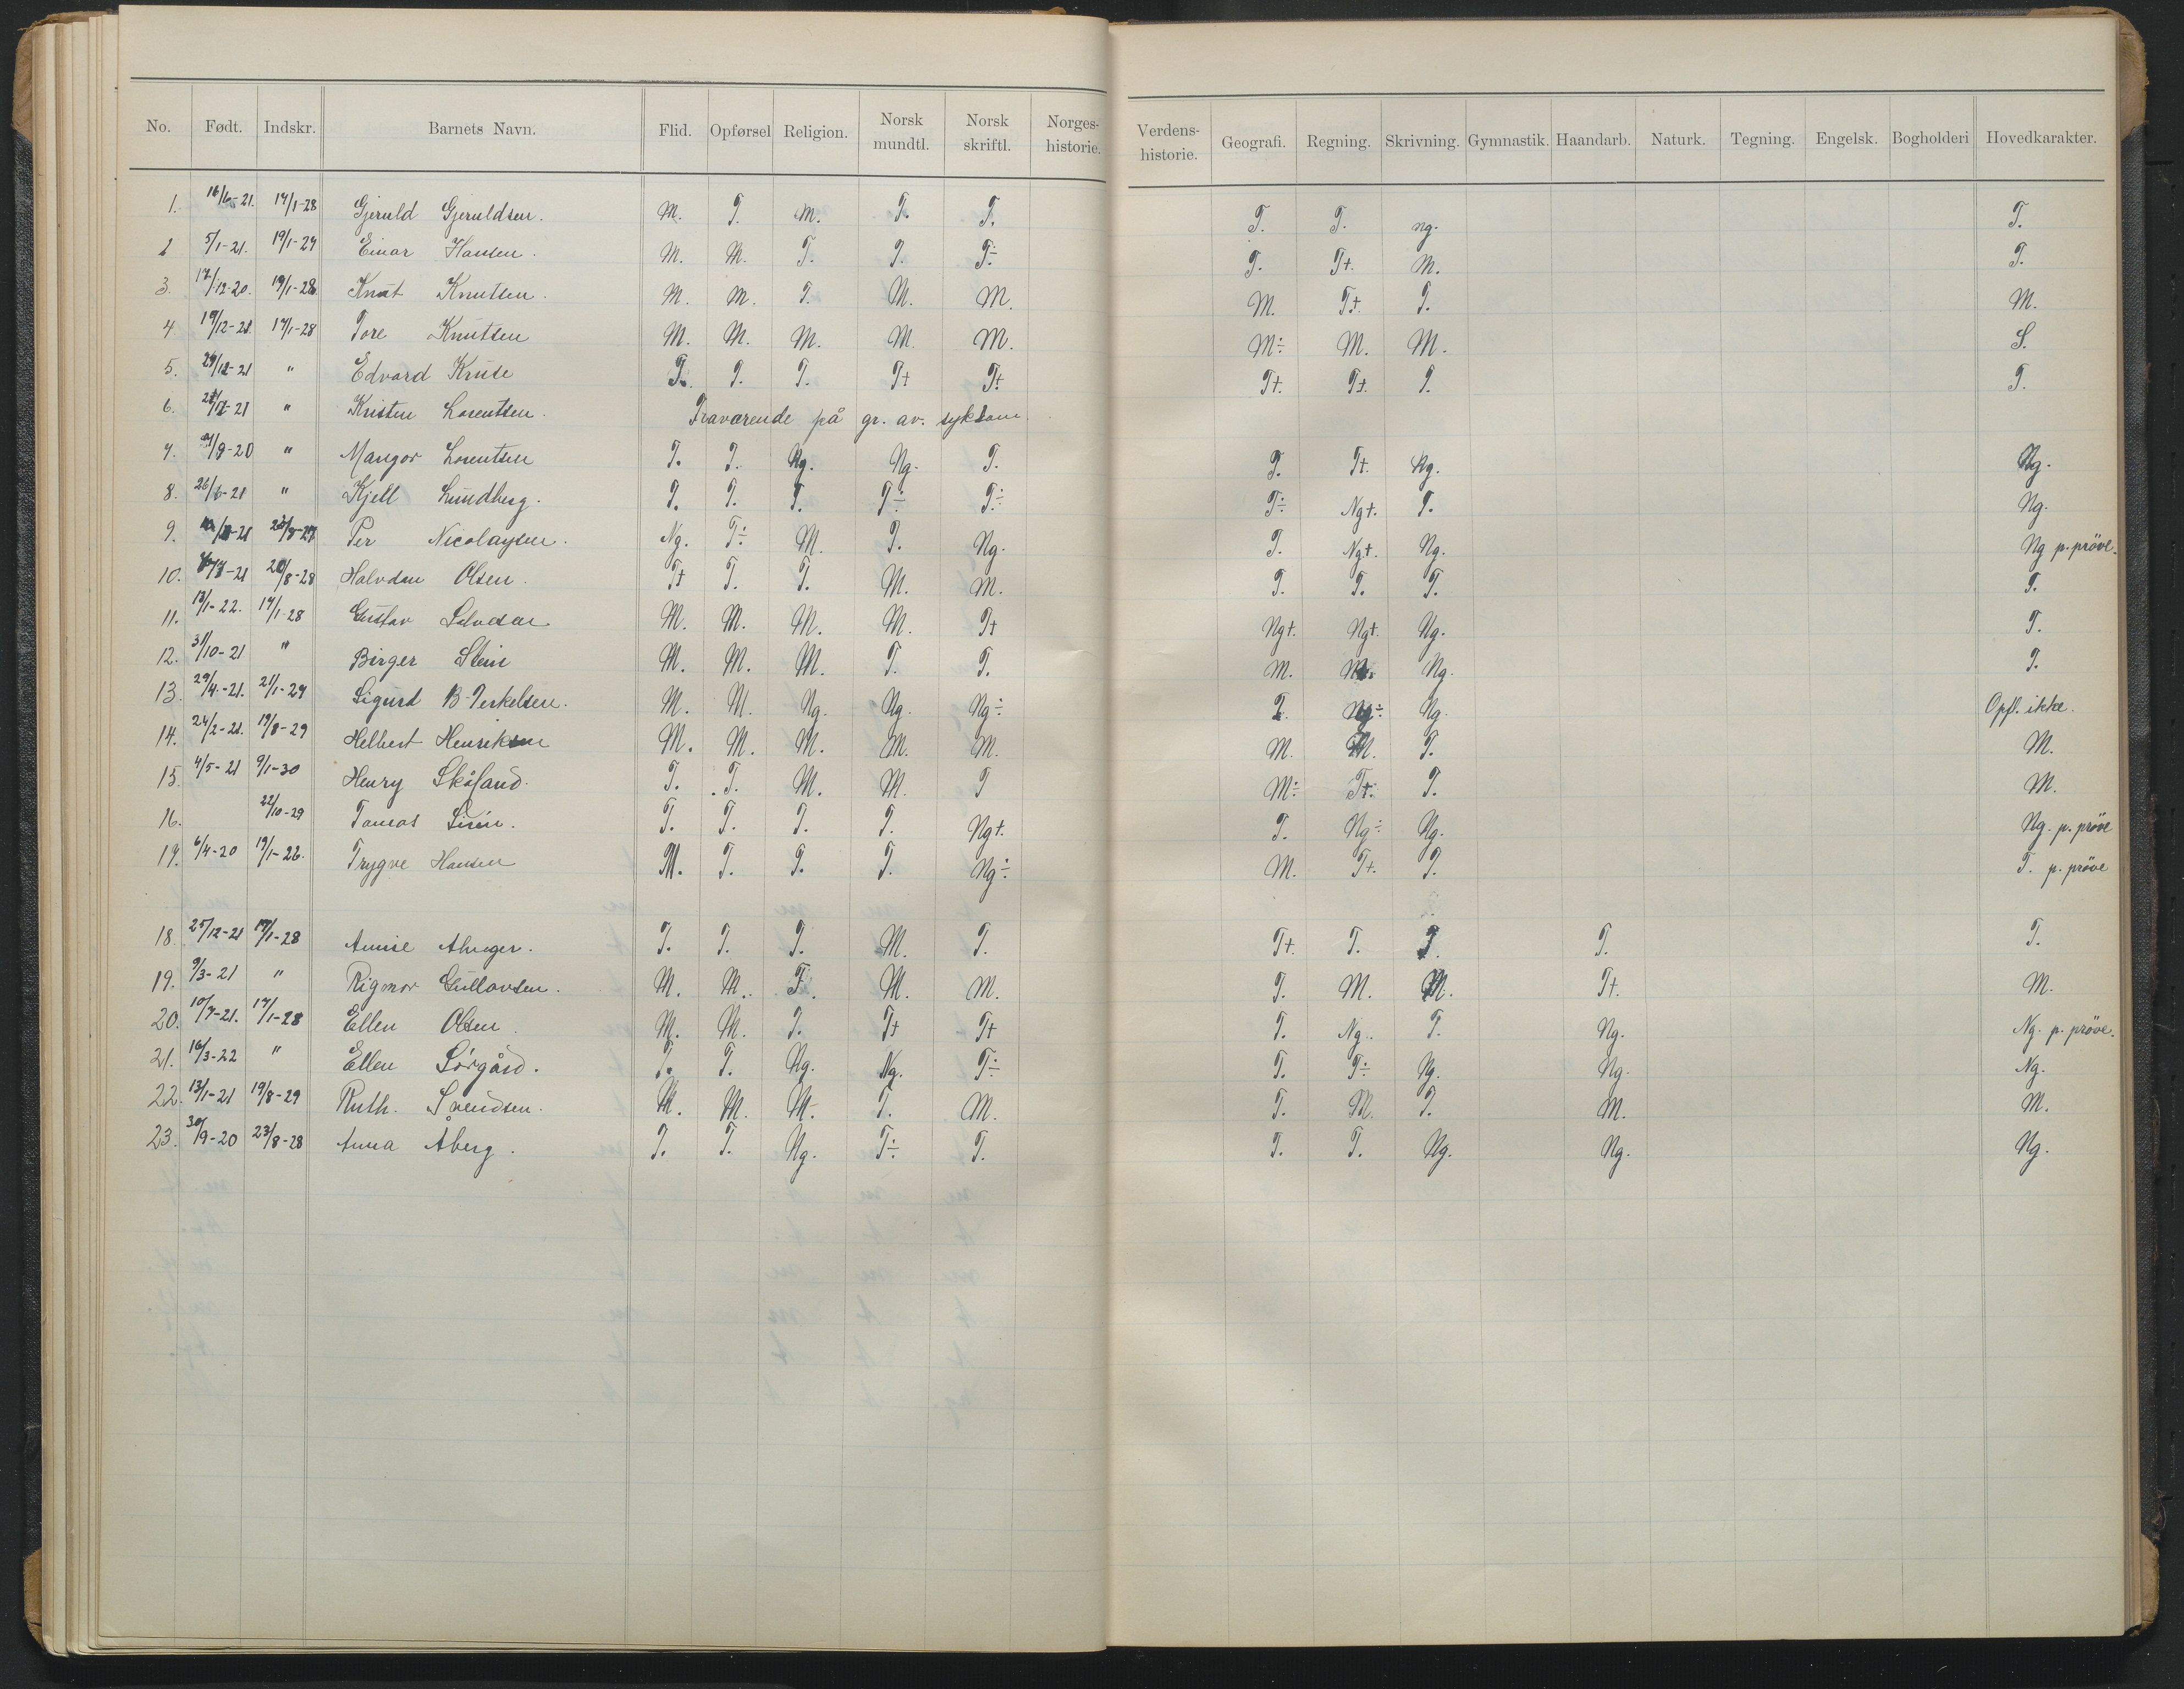 No. Født. Indskr. Barnets Navn. Flid. Opførsel Religion. Norsk mundtl. Norsk skriftl. Norges-historie. Verdens-historie. Geografi. Regning. Skrivning. Gymnastik. Haandarb. Naturk. Tegning. Engelsk. Bogholderi Hovedkarakter.
1. 16/6-21. 17/1-28 Gjeruld Gjeruldsen. M. T. M. T. T. T. T. ng. T.
2 5/1-21. 19/1-27 Einar Hansen. M. M. T. T. T÷ T. T+. M. T.
3. 17/12-20. 19/1-28 Knut Knutsen. M. M. T. M. M. M. T+. T. M.
4. 19/12-21. 17/1-28 Tore Knutsen M. M. M. M. M. M÷ M. M. S.
5. " Edvard Kruse T. T. T. T+ T+ T+. T+. T. T.
6. " Kristen Lorentsen. Fraværende på gr. av. sykdom.
7. /9-20 " Mangor Lorentsen T. T. Ng. Ng. T. T. T+. Ng. Ng.
8. 26/6-21 " Kjell Lundberg. T. T. T. T÷ T÷ T÷ Ng+. T. Ng.
9. Per Nicolaysen. Ng. T÷ M. T. Ng. T. Ng+. Ng. Ng p. pröve.
10. /8-28 Halvdan Olsen. T+ T. T. M. M. T. T. T. T.
11. 13/1-22. 17/1-28 Gustav M. M. M. M. T+ Ng+. Ng+. Ng. T.
12. 31/10-21 " Birger Stein M. M. M. T. T. M. Ng. T.
13. 29/4-21. 21/1-27 Sigurd B. Terkelsen. M. M. Ng. Ng. Ng÷ T. Ng÷ Ng. Opfl. ikke.
14. 24/2-21. 19/8-29 Helbert Henriksen M. M. M. M. M. M. M. T. M.
15. 4/5-21 9/1-30 Henry Skåland. T. T. M. M. T M÷ T+. T. M.
16. 22/10-29 Tomas T. T. T. T. Ng+. T. Ng÷ Ng. Ng. p. pröve
17. 6/4-20 19/1-26. Trygve Hansen M. T. T. T. Ng÷ M. T+. T. T. p. pröve
18. 25/12-21 17/1-28 T. T. T. M. T. T+. T. T. T. T.
19. 9/3-21 " Rigmor Gullovsen. M. M. T. M. M. T. M. M. T+. M.
20. 10/7-21. 17/1-28 Ellen Olsen. M. M. T. T+ T+ T. Ng. T. Ng. Ng. p. pröve.
21. 16/3-22 " Ellen Sørgård. T. T. Ng. Ng. T÷ T. T÷ Ng. Ng. Ng.
22. 13/1-21 19/8-29 Ruth. Svendsen. M. M. M. T. M. T. M. T. M. M.
23. 30/9-20 23/8-28 Anna Åberg. T. T. Ng. T÷ T. T. T. Ng. Ng. Ng.